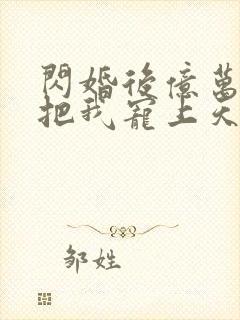 閃婚後億萬
把我寵上天
邹姓